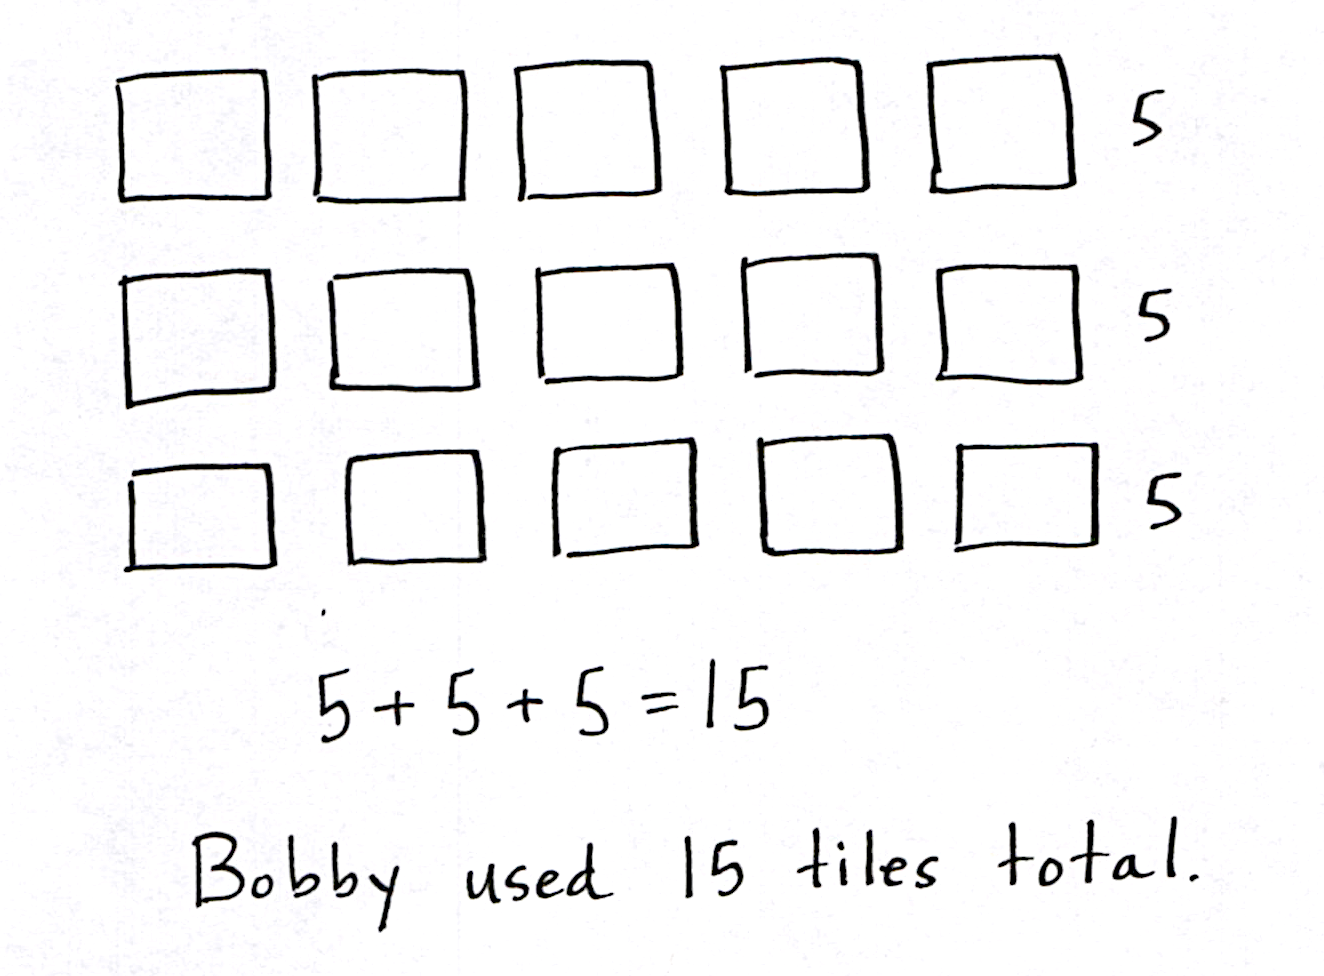 5
5
5
5 + 5 + 5 = 15
Bobby used 15 tiles total.